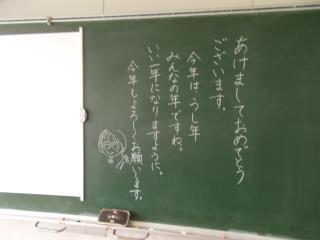 あけましておめでとう
ございます。
今年は、うし年
みんなの年ですね。
いい一年になりますように。
今年もよろしくお願いします。